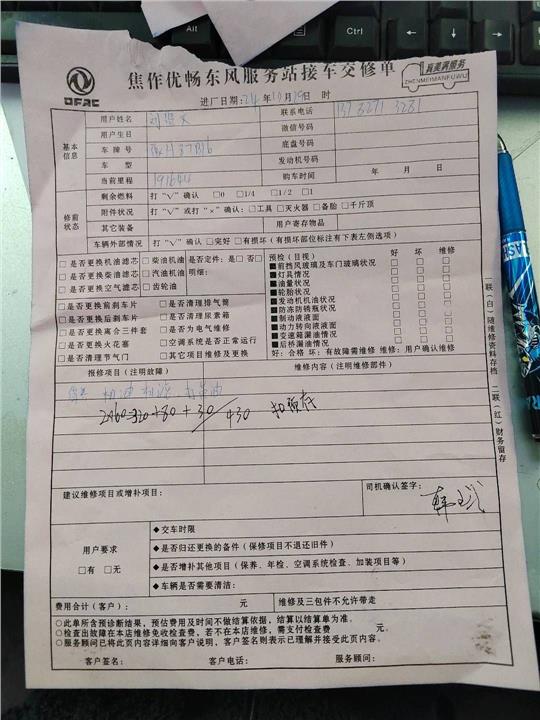 DFAC
焦作优畅东风服务站接车交修单
真美满服务
ZHENMEIMANFUWU
进厂日期：24 年 10 月 29 日 时
基本信息
用户姓名 联系电话
用户生日 微信号码
车牌号 底盘号码
车 型 发动机号码
当前里程 191644 购车时间 年 月 日
修前状态
剩余燃料 打“√”确认 □0 □1/4 □1/2 □1
附件状况 打“√”或打“×”确认：□工具 □灭火器 □备胎 □千斤顶
其它装备 用户寄存物品
车辆外部情况 打“√”确认 □完好 □有损坏（有损坏部位标注有下表左侧选项）
□是否更换机油滤芯 □柴油机油 □是否定件：是□否□
□是否更换柴油滤芯 □汽油机油 明细：
□是否更换空气滤芯 □齿轮油
□是否更换前刹车片 □是否清理排气筒
□是否更换后刹车片 □是否清理尿素箱
□是否更换离合三件套 □是否为电气维修
□是否更换火花塞 □空调系统是否正常运行
□是否清理节气门 □其它项目维修及更换
预检（目视） 好 坏 维修
■前挡风玻璃及车门玻璃状况 □ □ □
■灯具情况 □ □ □
■油量状况 □ □ □
■轮胎状况 □ □ □
■发动机机油状况 □ □ □
■防冻防锈瓶状况 □ □ □
■制动液液面 □ □ □
■动力转向液液面 □ □ □
■变速箱漏油情况 □ □ □
■后桥漏油情况 □ □ □
好：合格 坏：有故障需维修 维修：用户确认维修
报修项目（注明故障） 维修内容（注明维修部件）
2×160=320+80+30 430
建议维修项目或增补项目： 司机确认签字：
用户要求
□有 □无
◆交车时限
◆是否归还更换的备件（保修项目不退还旧件）
◆是否增补其他项目（保养、年检、空调系统检查、加装项目等）
◆车辆是否需要清洁：
费用合计（客户）： 元 维修及三包件不允许带走
○此单所含预诊断结果，预估费用及时间不做结算依据，结算以结算单为准。
○检查出故障在本店维修免收检查费，若不在本店维修，需支付检查费 元。
○服务顾问已将此页内容详细向客户说明，客户签名则表示已理解并接受此页内容。
客户签名： 客户电话： 服务顾问：
一联（白）随维修资料存档 二联（红）财务留存